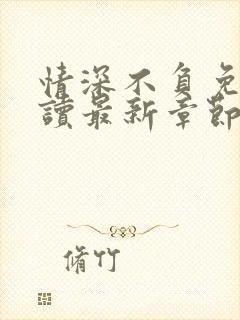 情深不負免
讀最新章節
脩竹